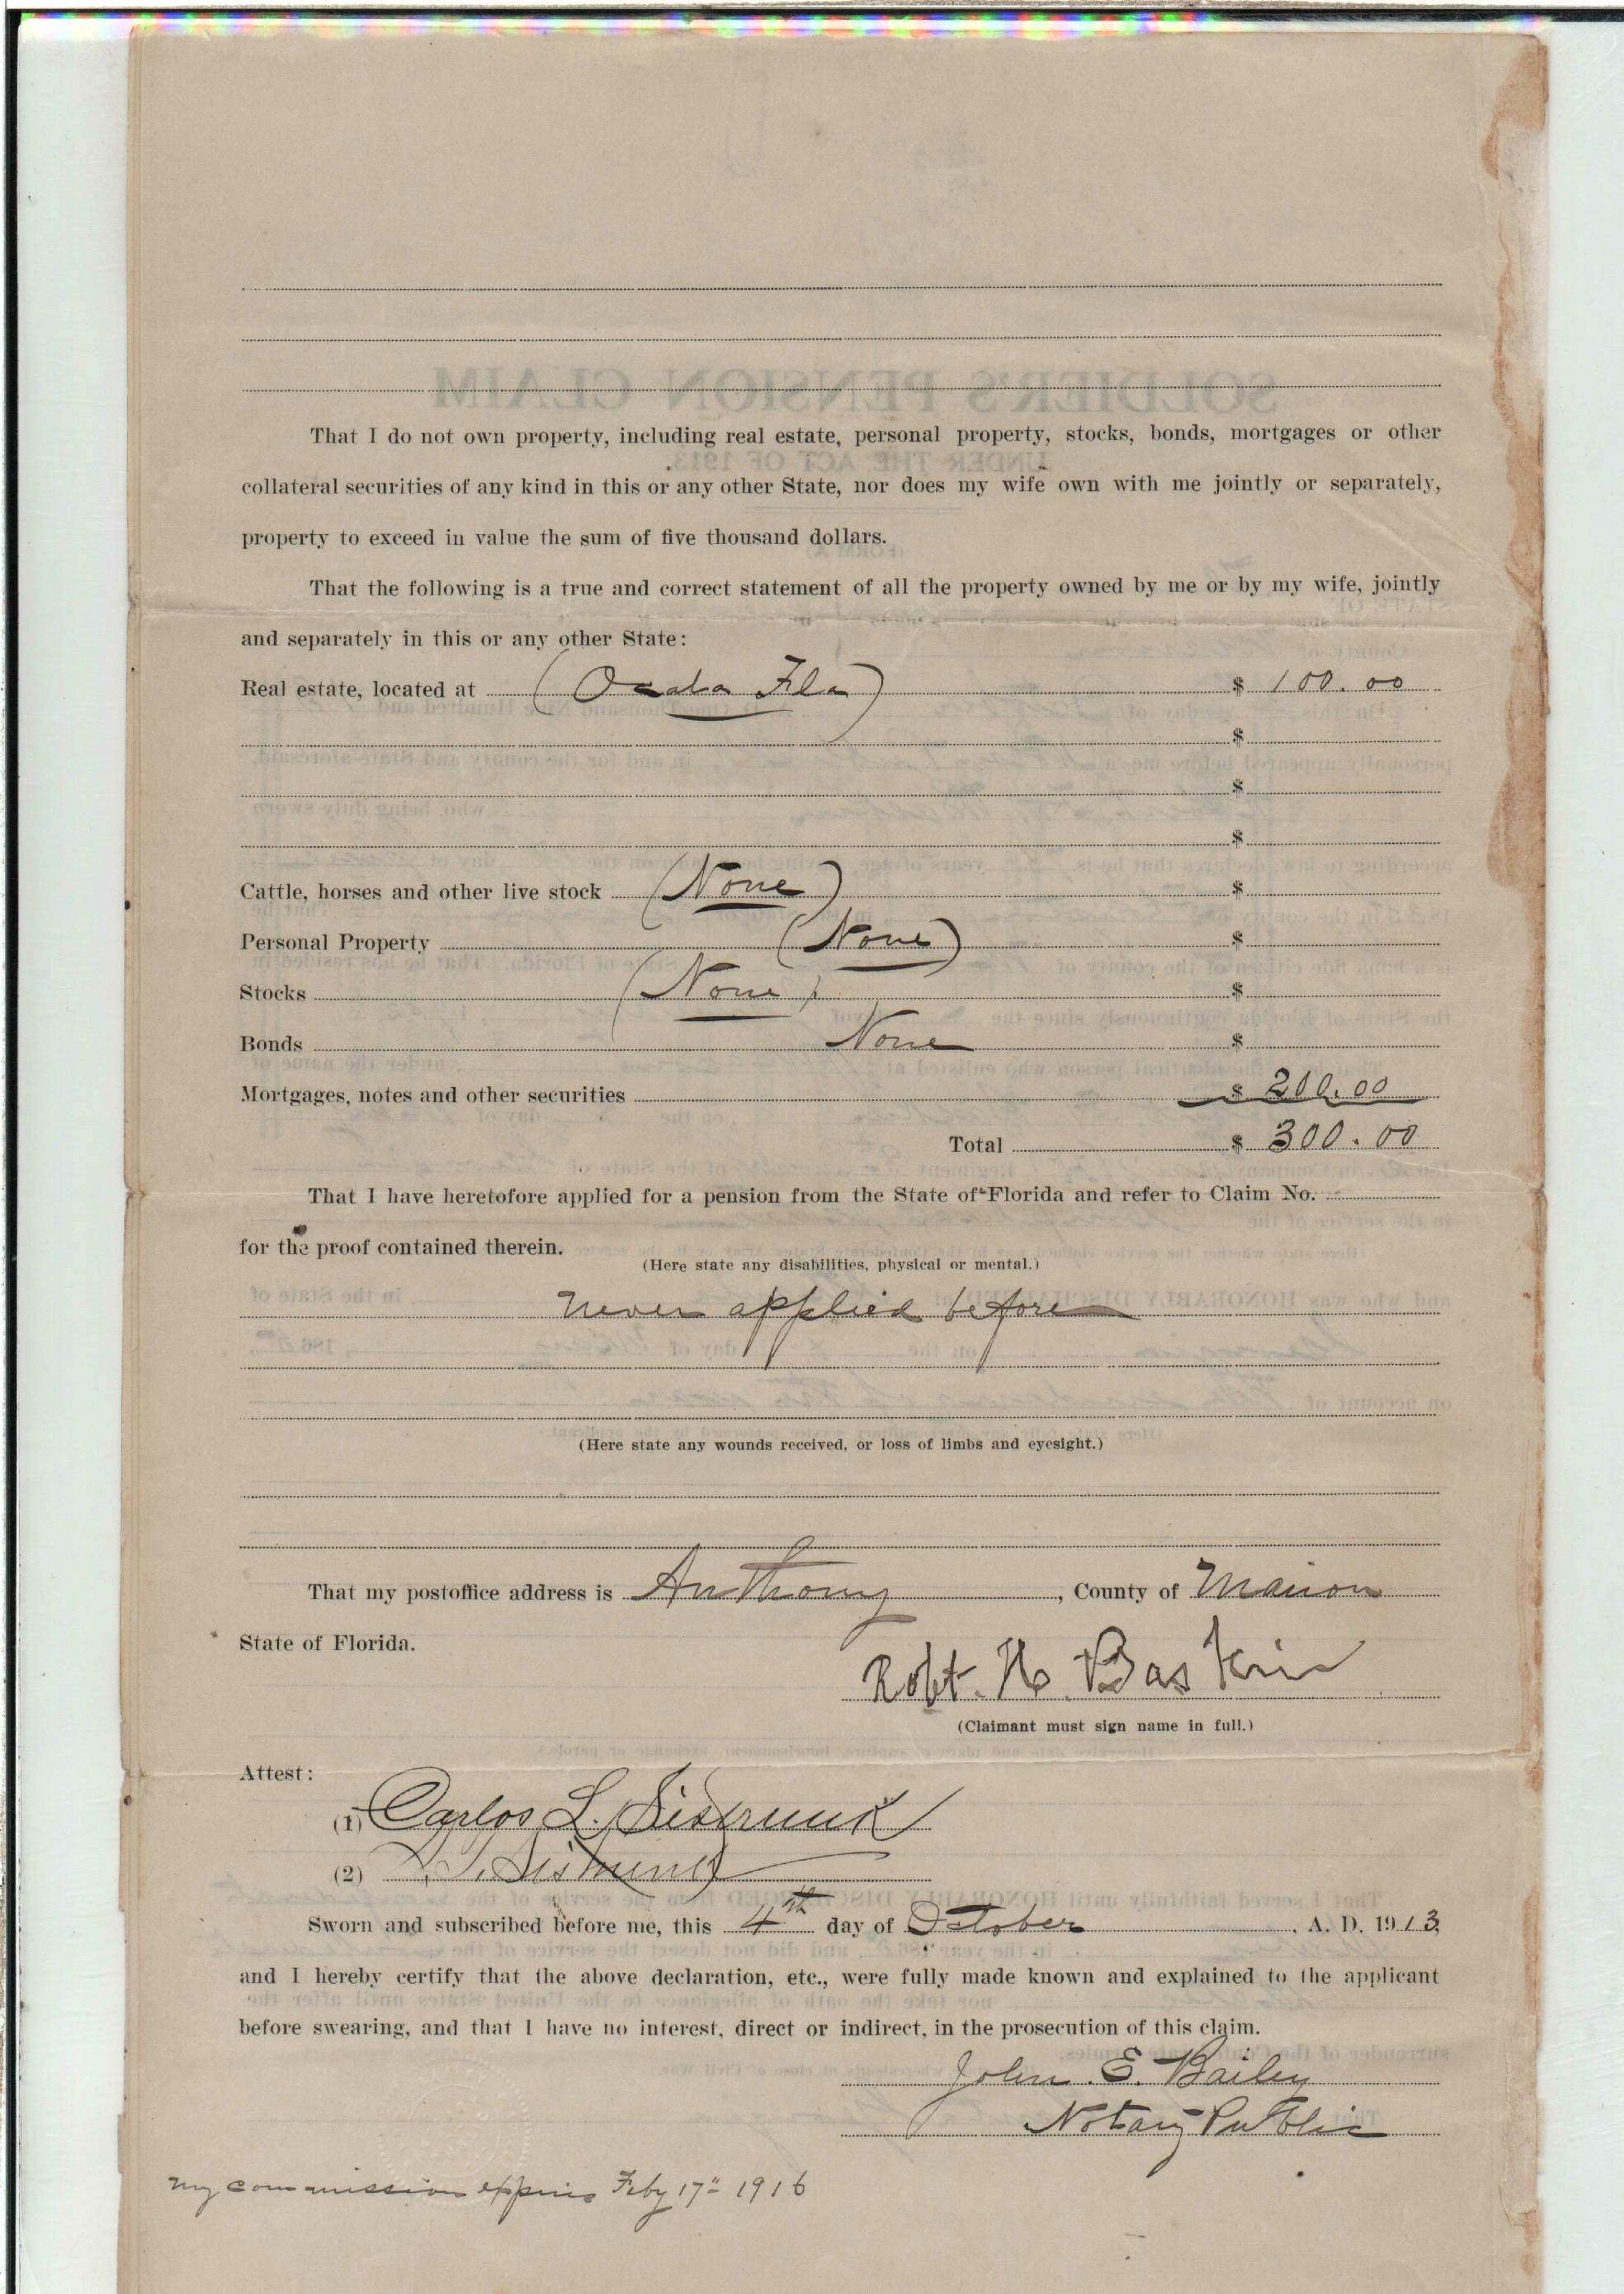 That I do not own property, including real estate, personal property, stocks, bonds, mortgages or other
collateral securities of any kind in this or any other State, nor does my wife own with me jointly or separately,
property to exceed in value the sum of five thousand dollars.
That the following is a true and correct statement of all the property owned by me or by my wife, jointly
and separately in this or any other State:
Real estate, located at (Ocala Fla) $ 100.00
$
$
$
Cattle, horses and other live stock (None) $
Personal Property (None) $
Stocks (None) $
Bonds None $
Mortgages, notes and other securities $ 200.00
Total $ 300.00
That I have heretofore applied for a pension from the State of Florida and refer to Claim No.
for the proof contained therein.
(Here state any disabilities, physical or mental.)
Never applied before
(Here state any wounds received, or loss of limbs and eyesight.)
That my postoffice address is Anthony, County of Marion
State of Florida.
Robt. H Baskin
(Claimant must sign name in full.)
Attest:
(1) Carlos L. Sistrunk
(2) Sistrunk
Sworn and subscribed before me, this 4th day of October, A. D. 1913
and I hereby certify that the above declaration, etc., were fully made known and explained to the applicant
before swearing, and that I have no interest, direct or indirect, in the prosecution of this claim.
John E. Bailey
Notary Public
My commission expires Feby 17" 1916